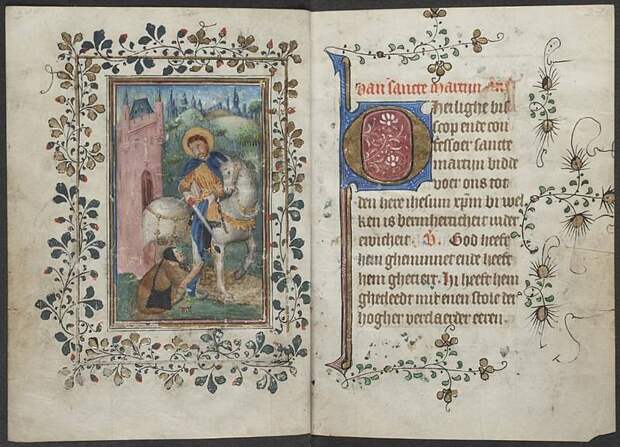 Van sancte martijn
O heilighe bis
scop ende con
fessoer sancte
martijn bidde
voer ons tot
den here ihesum xpm bi wel
ken is bermherticheit inder
ewicheit God heeft
hem ghemīnet ende heeft
hem gheciert. Hi heeft hem
ghecleedt mit enen stole der
hogher verclaerder eeren.